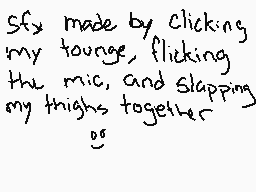 sfx made by clicking
my tounge, flicking
the mic, and slapping
my thighs together